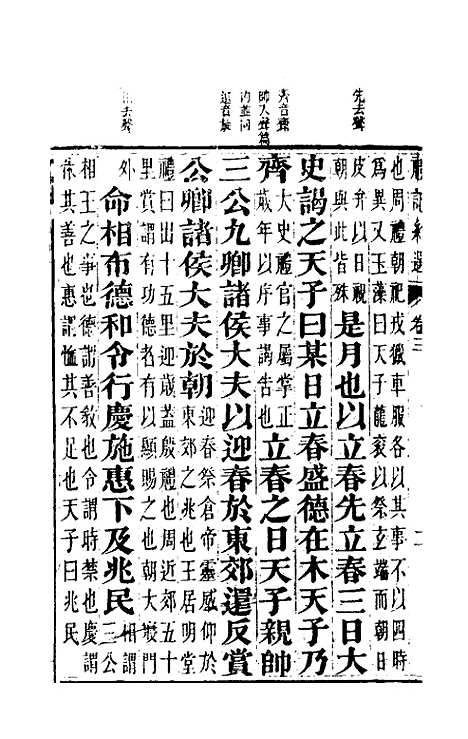 先去聲
齊音齋
還音旋
也周禮朝祀戎獵車服各以其事不以四時
爲異又玉藻曰天子龍袞以祭玄端而朝日
皮弁以日視
朝與此皆殊
是月也以立春先立春三日大
史謁之天子曰某日立春盛德在木天子乃
齊
大史禮官之屬掌正
歲年以序事謁告也
立春之日天子親帥
三公九卿諸侯大夫以迎春於東郊還反賞
公卿諸侯大夫於朝
迎春祭倉帝靈威仰於
東郊之兆也王居明堂
禮曰出十五里迎歲蓋殷禮也周近郊五十
里賞謂有功德者有以顯賜之也朝大寢門
外
命相布德和令行慶施惠下及兆民
相謂三公
相王之事也德謂善教也令謂時禁也慶謂
休其善也惠謂恤其不足也天子曰兆民